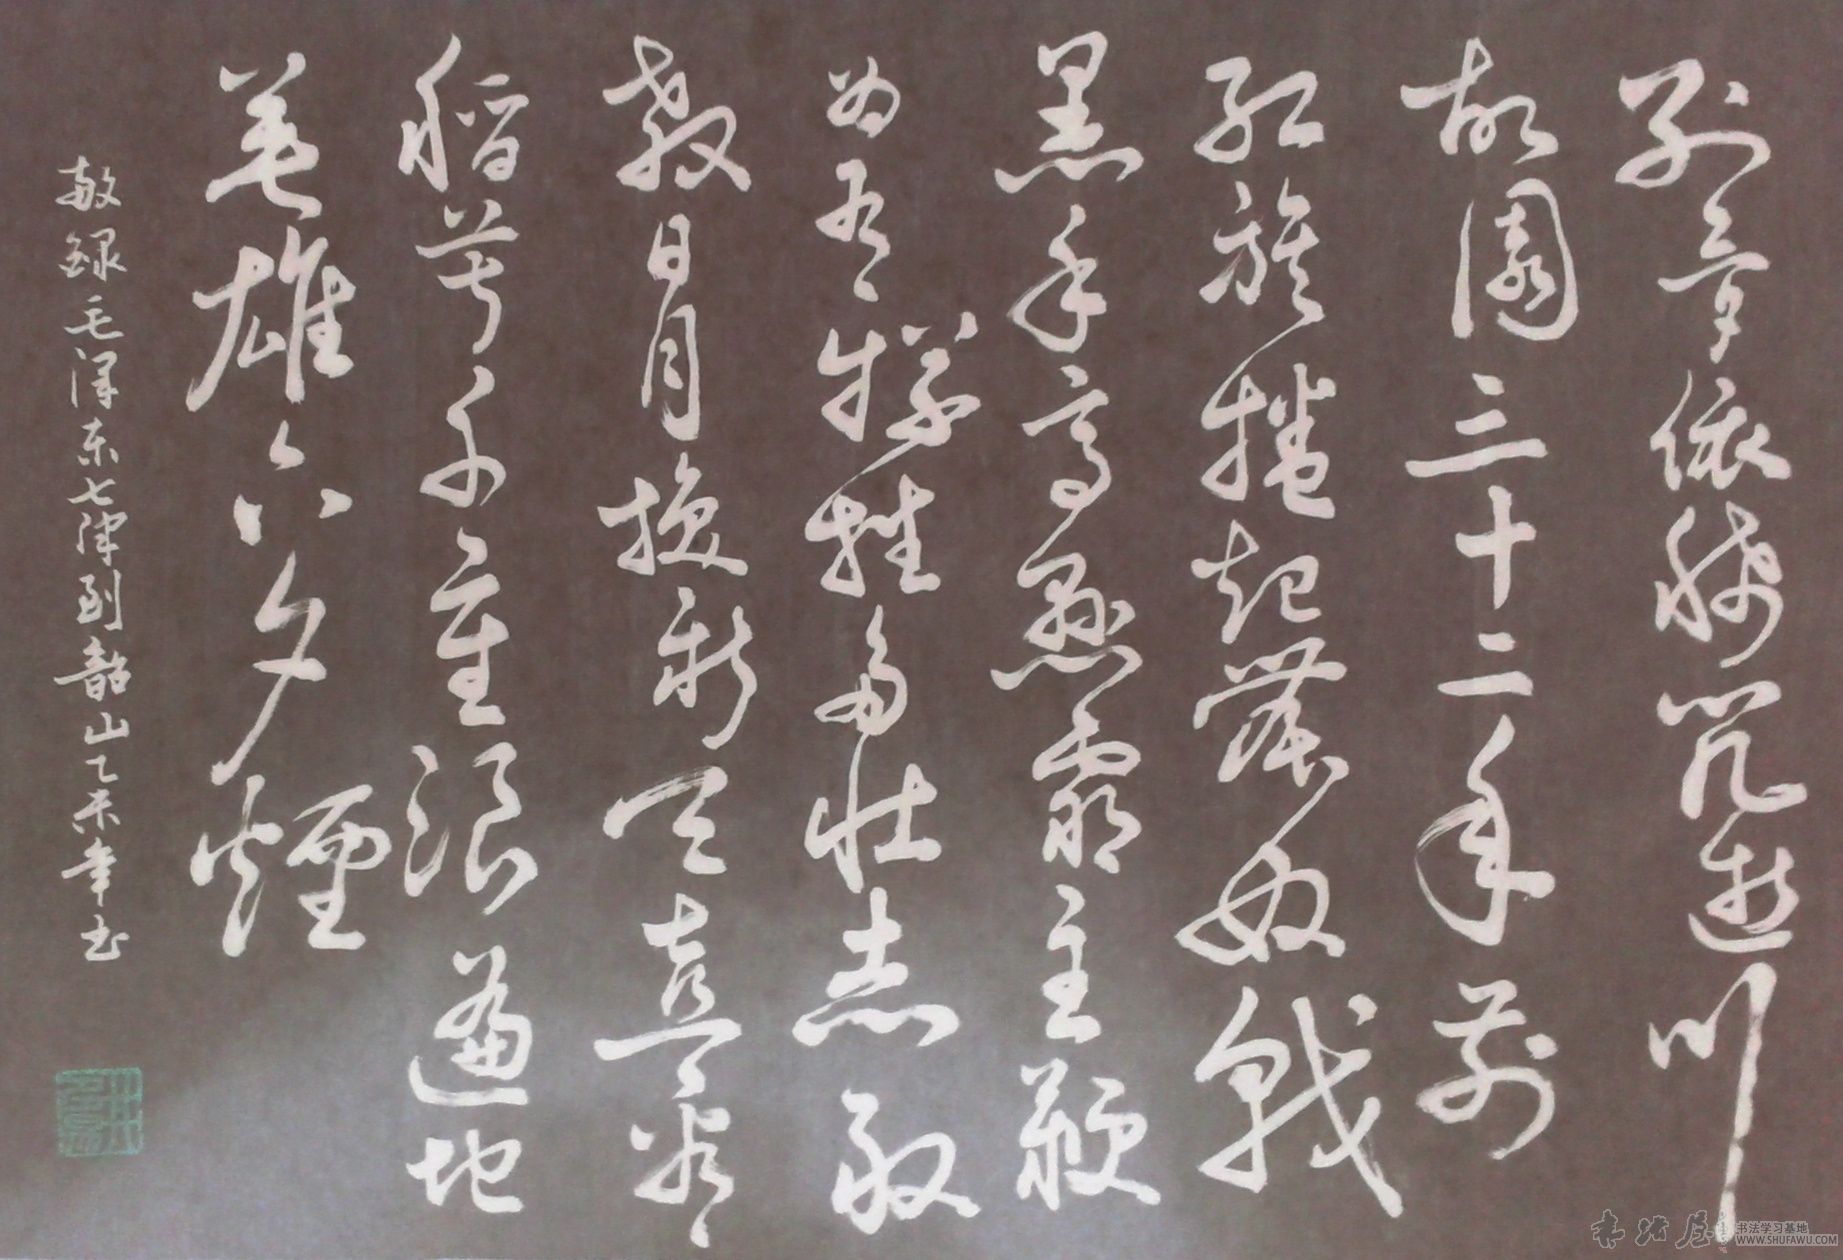 别梦依稀咒逝川
故園三十二年前
红旗捲起農奴戟
黑手高懸霸主鞭
为有犧牲多壮志敢
教日月换新天喜看
稻菽千重浪遍地
英雄下夕煙
敬録毛泽东七律到韶山乙未年书
书法学习基地
WWW.SHUFAWU.COM